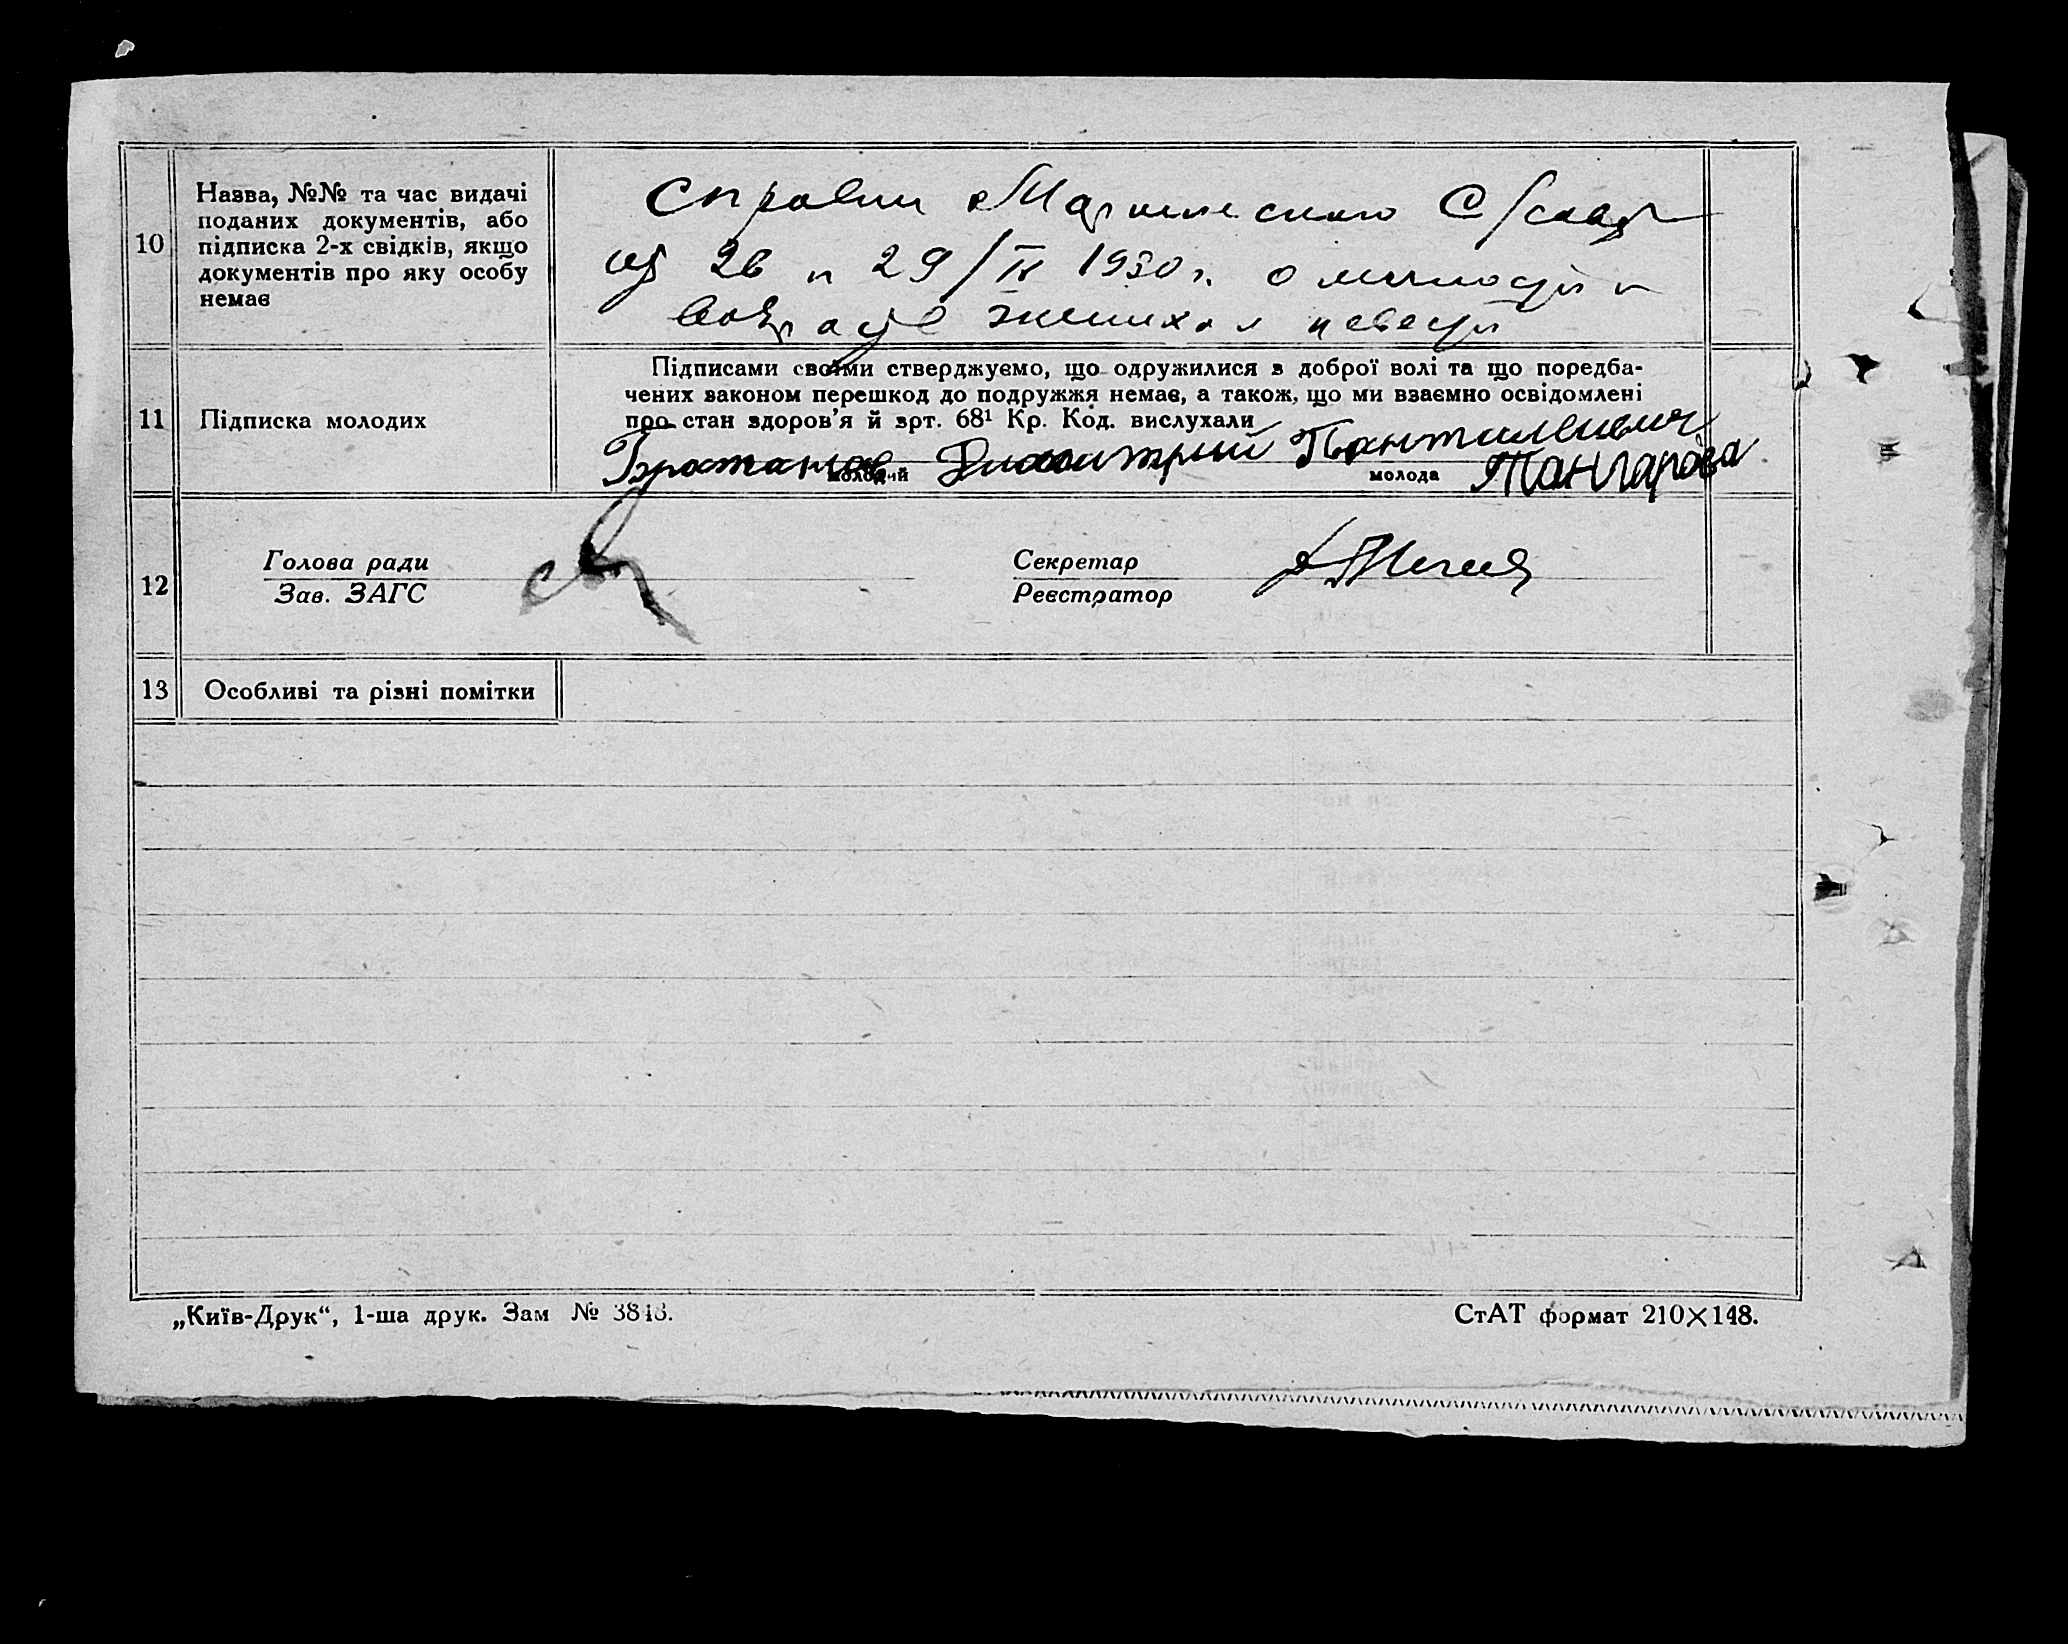 10
Назва, №№ та час видачі
поданих документів, або
підписка 2-х свідків, якщо
документів про яку особу
немає
Справки С/совета
от 26 и 29/IX 1930 г. о личности и
возрасте жениха и невесты
11
Підписка молодих
Підписами своїми стверджуємо, що одружилися з доброї волі та що поредба-
чених законом перешкод до подружжя немає, а також, що ми взаємно освідомлені
про стан здоров'я й зрт. 68¹ Кр. Код. вислухали
Братанов Димитрий Пантилеевич
молодий
молода Танчарова
12
Голова ради
Зав. ЗАГС
Секретар
Реєстратор
13
Особливі та різні помітки
„Київ-Друк“, 1-ша друк. Зам № 3843.
СтАТ формат 210×148.